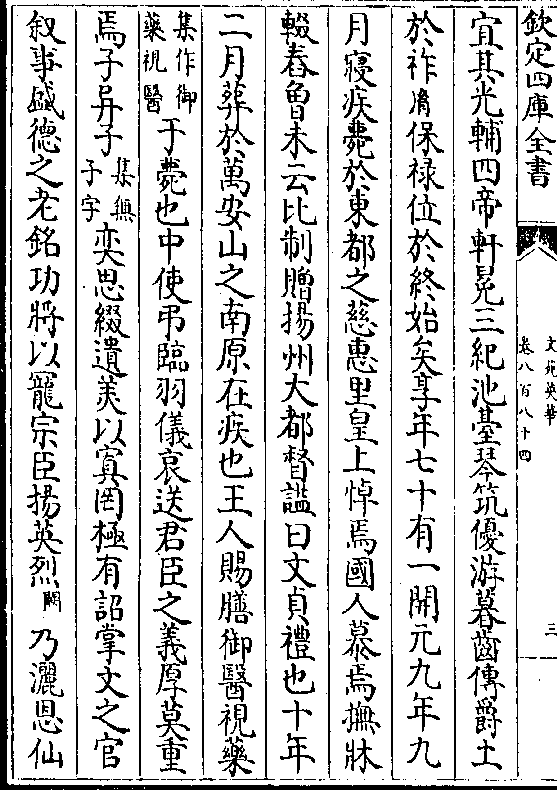 欽定四庫全書
文苑英華
卷八百八十四
三
宜其光輔四帝軒冕三紀池臺琴筑優游暮齒傳爵土
於祚𦙍保禄位於終始矣享年七十有一開元九年九
月寢疾薨於東都之慈惠里皇上悼焉國人慕焉撫牀
輟舂魯未云比制贈揚州大都督諡曰文貞禮也十年
二月葬於萬安山之南原在疾也王人賜膳御醫視藥
集作御藥視醫于薨也中使弔臨羽儀哀送君臣之義厚莫重
焉子异子集無子字奕思綴遺美以寘罔極有詔掌文之官
叙事盛德之老銘功將以寵宗臣揚英烈闕乃灑恩仙